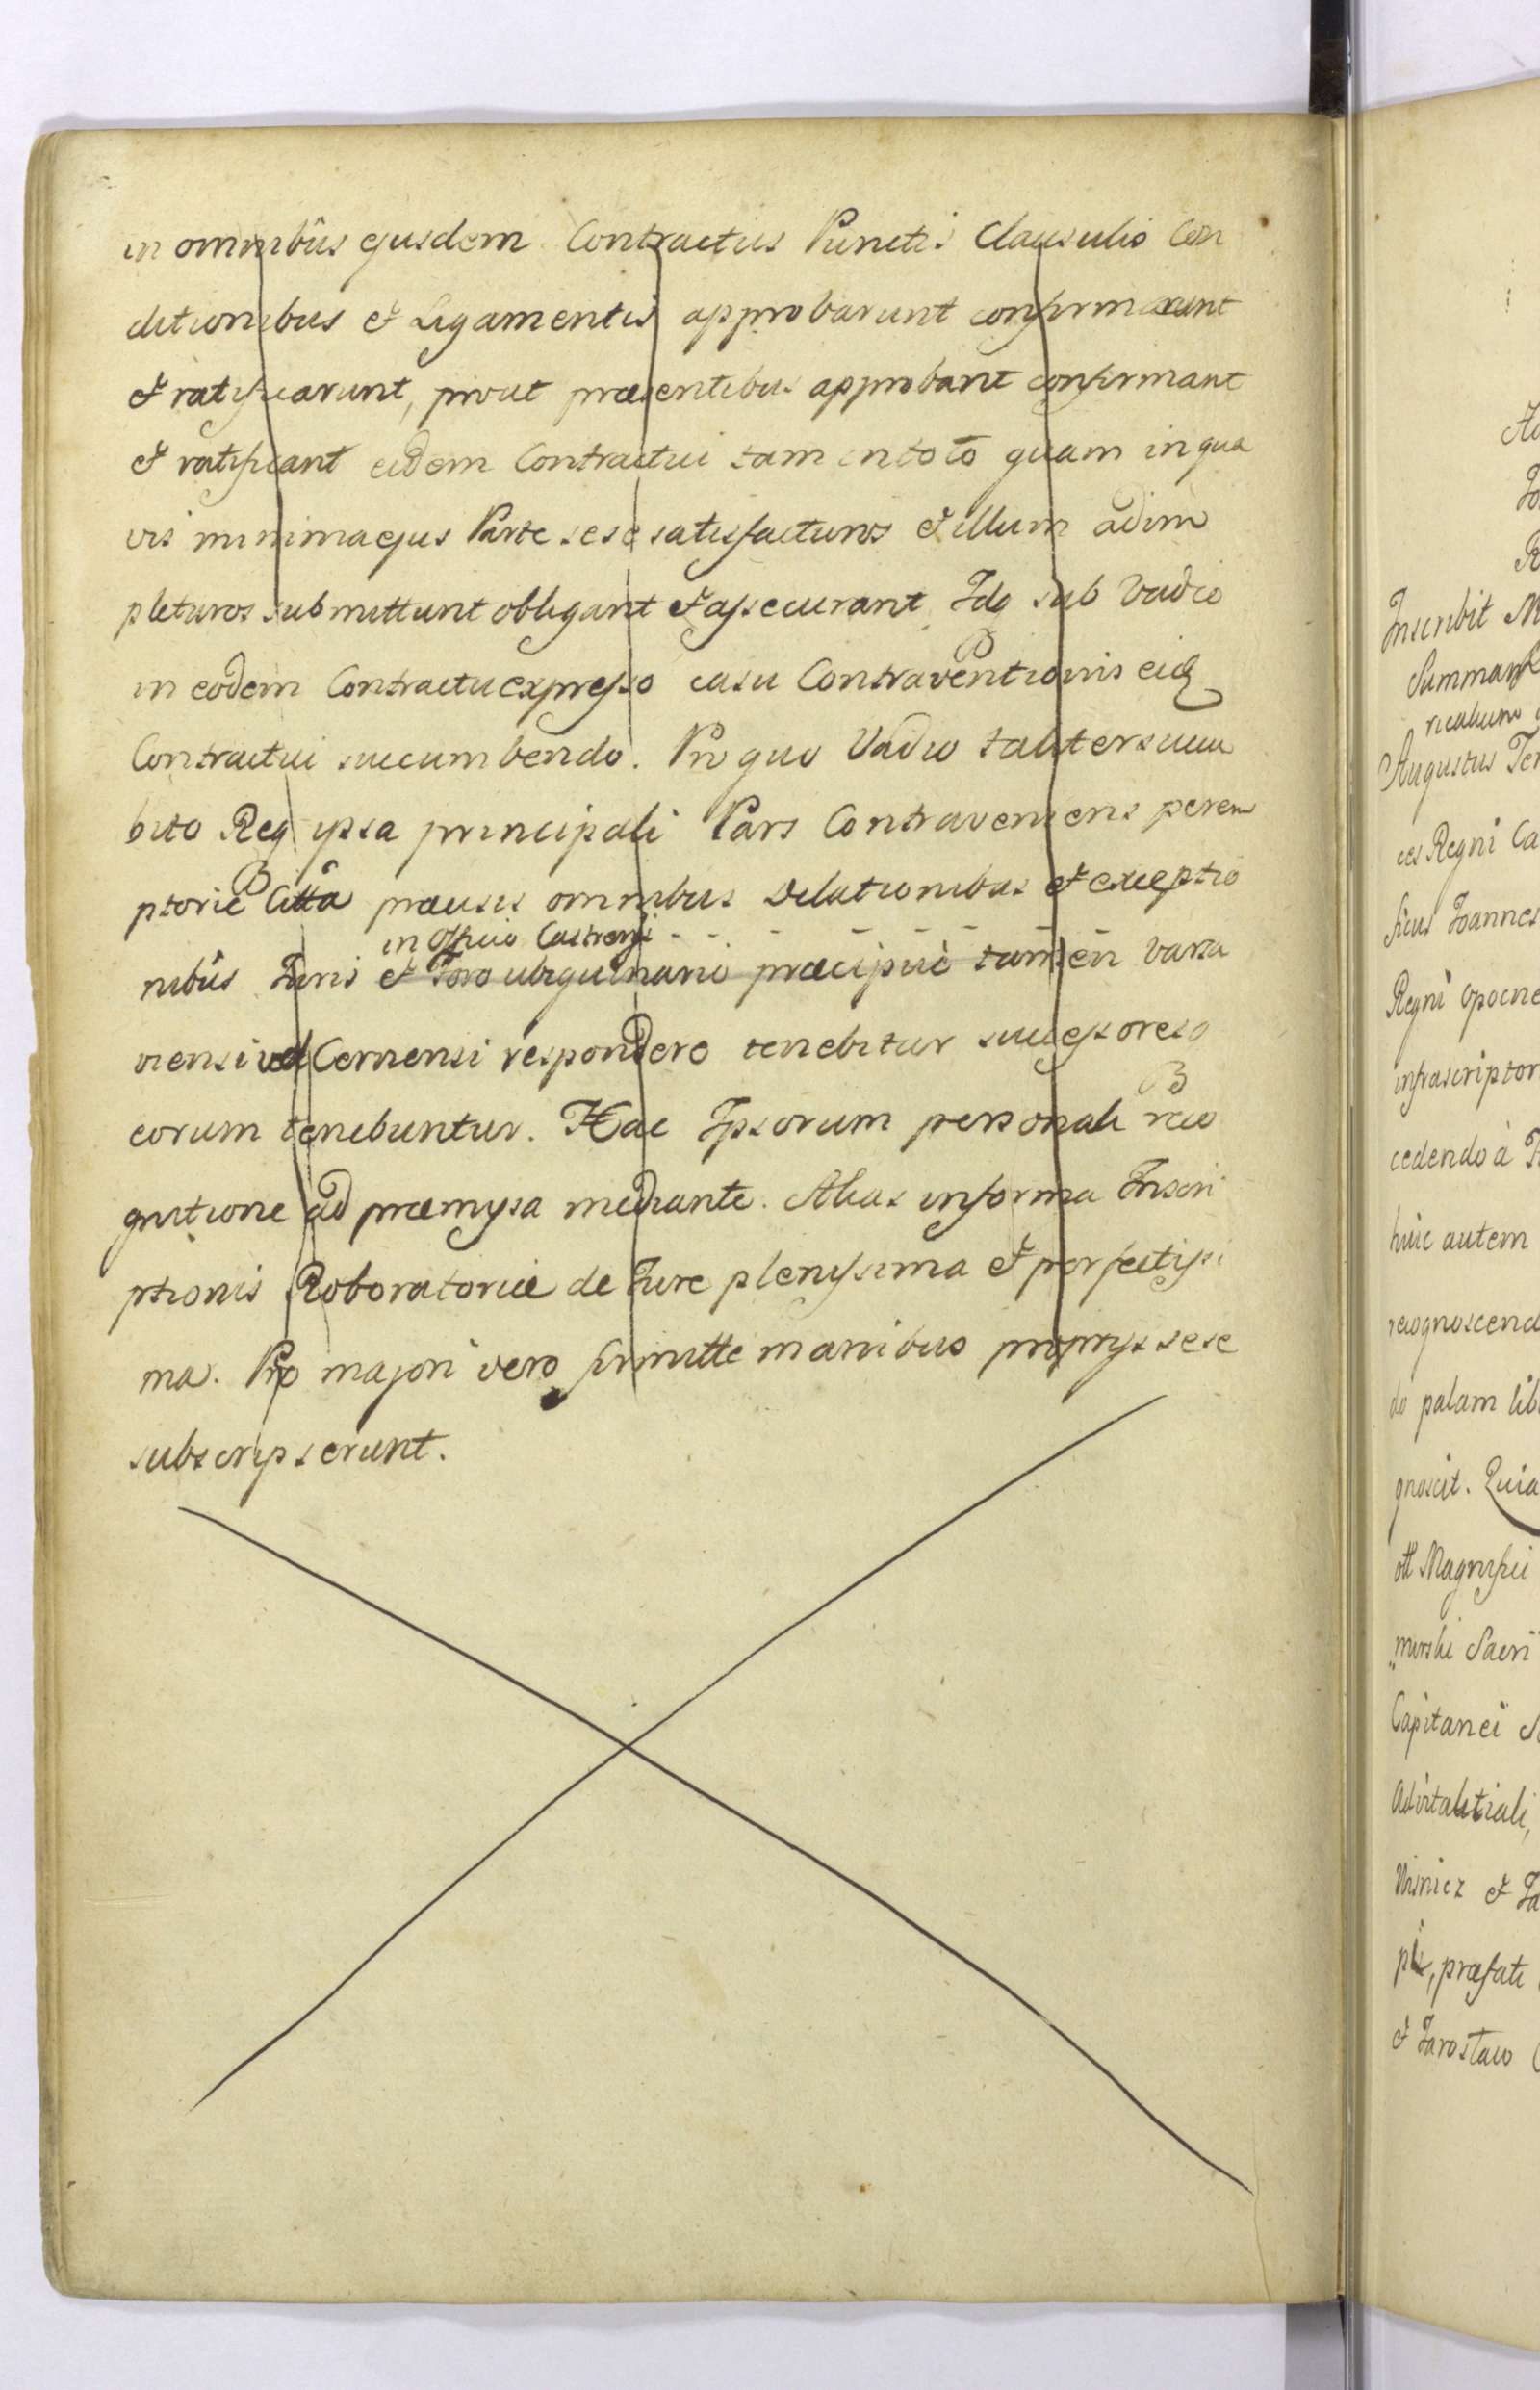 in omnibus ejusdem Contractus Punctis Clausulis Con
ditionibus et Ligamentis approbarunt confirmarunt
et ratificarunt, prout præsentibus approbant confirmant
et ratificant eidem Contractui tam in toto quam in qua
vis minima ejus Parte sese satisfacturos et illum adim
pleturos submittunt obligant et assecurant Idq sub Vadio
in eodem Contractu expresso casu Contraventionis eidq
Contractui succumbendo. Pro quo Vadio taliter succu
bito Req ipsa principali Pars Contraveniens perem
ptorie Citta præcisis omnibus Dilationibus et exceptio
in Officio Castrensi
nibus Juris et Foro ubiquinario præcipuè tamen Varsa
viensi vel Cernensi respondere tenebitur successoresq
eorum tenebuntur. Hac Ipsorum personali reco
gnitione ad præmissa mediante. Alias in forma Inscri
ptionis Roboratoriæ de Jure plenissima et perfectissi
ma. Pro majori vero firmitte manibus propriis sese
subscripserunt.
Inscribit
Summam
Augustus
ces Regni Ca
ficus Joannes
Regni Opocne
infrascriptor
cedendo à
huic autem
recognoscend
do palam lib
gnoscit. Quia
ott Magnifici
mirski Sacri
Capitanei
Advitalitiali,
Wisnicz et Ja
præfati
et Jarosław